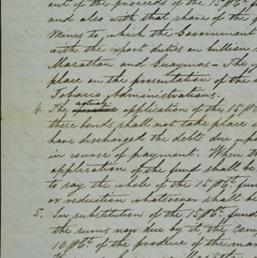 out of the proceeds of the 15 pct. f
and also with that share of the g
Mines to which the Government
with the export duties on bullion
Mazatlan and Guaymas - The
place on the presentation of the
Tobacco Administrations.
4. The actual application of the 15 pct.
these bonds shall not take place
have discharged the debts due upon
in course of payment. When th
application of the fund shall be
to say the whole of the 15 pct. fund
or reduction whatsoever shall be
5. In substitution of the 15 pct. fund
the sums now due by it, the com
10 pct. of the produce of the mar